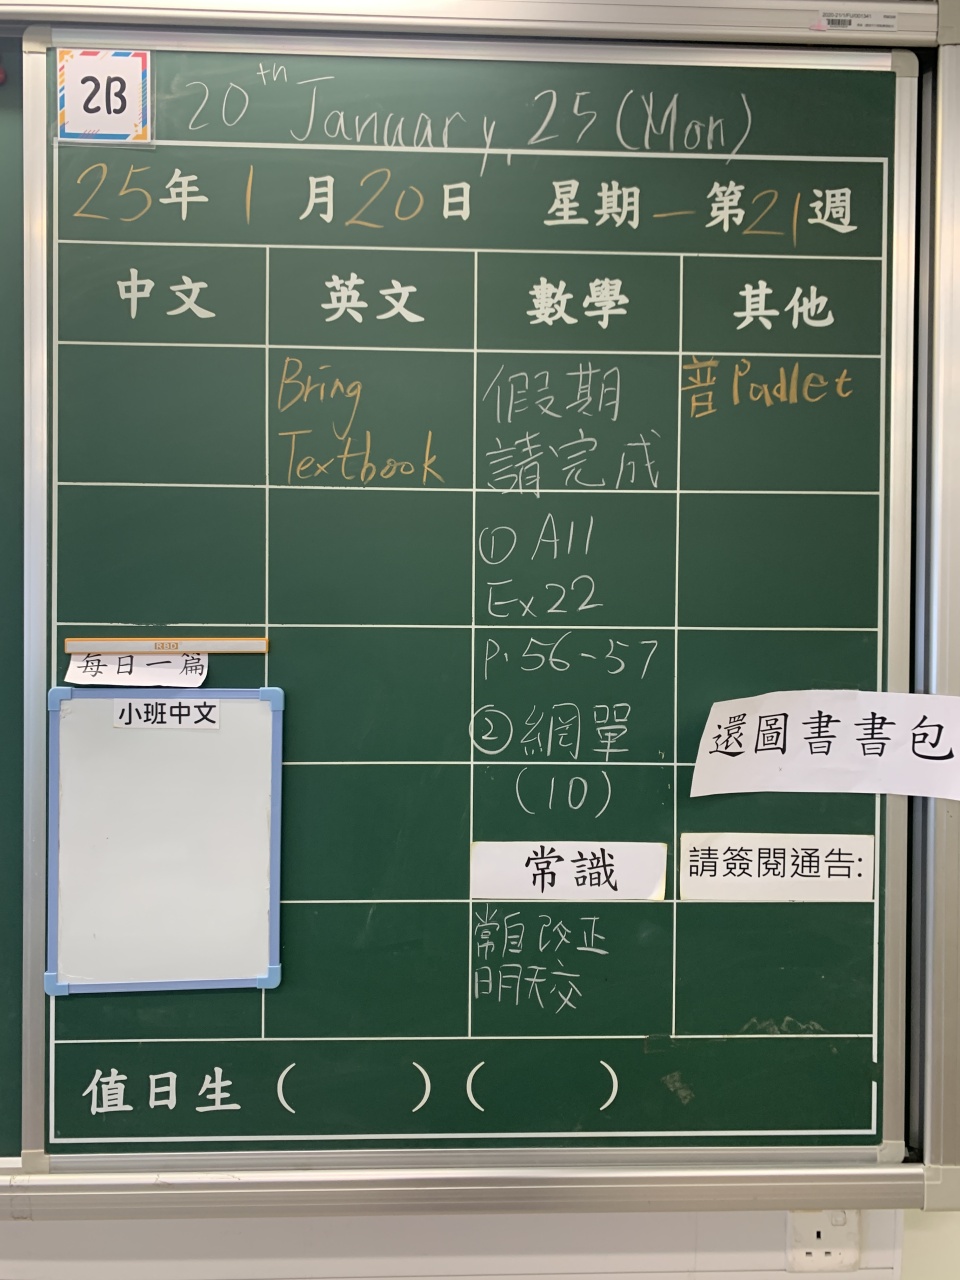 2B
20th January, 25 (Mon)
25年 1月20日 星期一第21週
中文 英文 數學 其他
Bring
Textbook
假期
請完成
① All
Ex22
p. 56-57
② 網單
(10)
普Padlet
RBD
每日一篇
小班中文
還圖書書包
常識
請簽閱通告:
常自改正
明天交
值日生 ( ) ( )